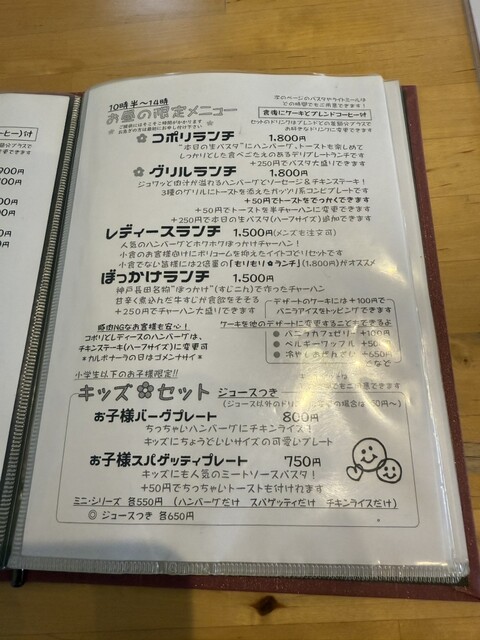 10時半〜14時
お昼の限定メニュー
次のページのパスタやライトミールは
どの時間でもご用意できます！
食後にケーキとブレンドコーヒー付
セットのドリンクはブレンドとの差額分プラスで
お好きなドリンクに変更できます
コポリランチ 1,800円
"本日の生パスタ"にハンバーグ、トーストも楽しめて
しっかりとした食べごたえのあるデリプレートランチです
+250円でパスタ大盛りできます
グリルランチ 1,800円
ジュワッと肉汁が溢れるハンバーグとソーセージ&チキンステーキ！
3種のグリルにトーストを添えたガッツリ系コンビプレートです
+50円でトーストをでっかくできます
+50円でトーストを半チャーハンに変更できます
+250円で本日の生パスタ(ハーフサイズ)追加できます
レディースランチ 1,500円(メンズも注文可)
人気のハンバーグとホクホクぼっかけチャーハン！
小食のお客様向けにボリュームを抑えたイイトコどりセットです
小食でない皆様には2倍量の「もりもり ランチ」(1,800円)がオススメ
ぼっかけランチ 1,500円
神戸長田名物"ぼっかけ"(すじこん)で作ったチャーハン
甘辛く煮込んだ牛すじが食欲をそそる
+250円でチャーハン大盛りできます
デザートのケーキには+100円で
バニライアイスをトッピングできます
豚肉NGなお客様も安心！
コポリとレディースのハンバーグは、
チキンステーキ(ハーフサイズ)に変更可
*カルボナーラの日はゴメンナサイ*
ケーキを他のデザートに変更することもできるよ
バニラカフェゼリー +100円
ベルギーワッフル +50
+650円
など
小学生以下のお子様限定!!
キッズ セット ジュースつき
(ジュース以外のドリン
お子様バーグプレート 800円
ちっちゃいハンバーグにチキンライス！
キッズにちょうどいいサイズの可愛いプレート
お子様スパゲッティプレート 750円
キッズにも人気のミートソースパスタ！
+50円でちっちゃいトーストも付けれます
ミニ・シリーズ 各550円 (ハンバーグだけ スパゲッティだけ チキンライスだけ)
◎ ジュースつき 各650円